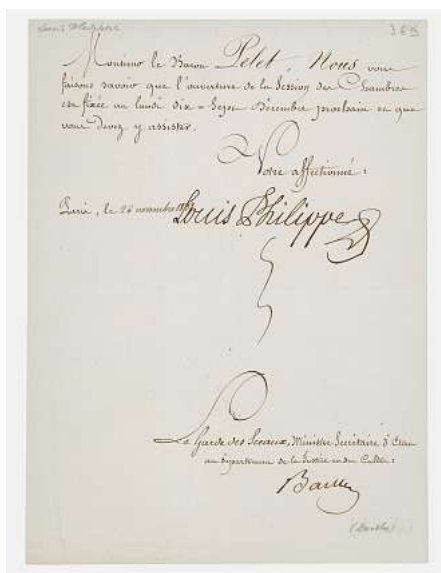 Louis Philippe
Monsieur le Baron Pelet, Nous vous
faisons savoir que l'ouverture de la Session des Chambres
est fixée au lundi dix-Sept Décembre prochain et que
vous devez y assister.
Votre affectionné :
Paris, le 26 novembre
Louis Philippe
Le Garde des Sceaux, Ministre Secrétaire d'Etat
au département de la Justice et des Cultes :
Barthe